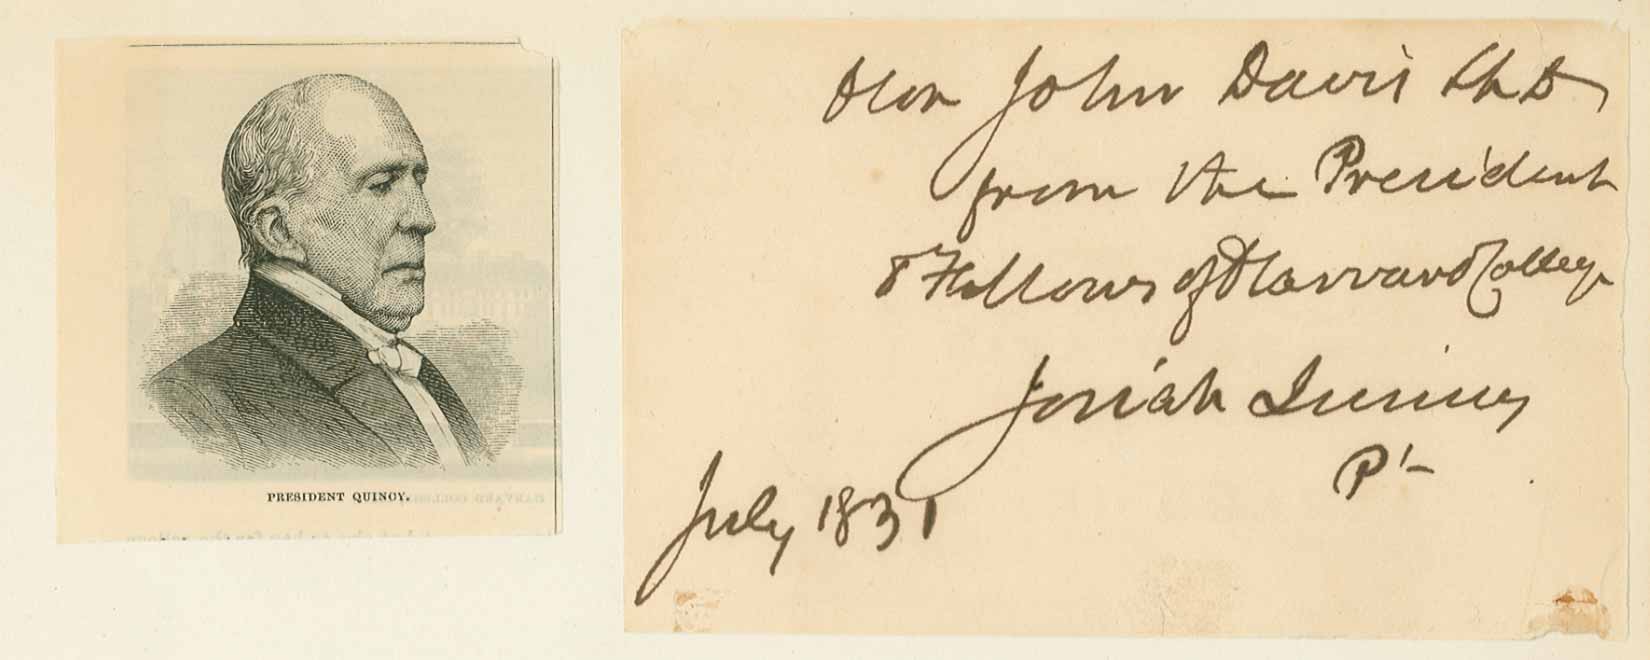 PRESIDENT QUINCY.
Hon John Davis LLD
from the President
& Fellows of Harvard College
Josiah Quincy
Pt
July 1831